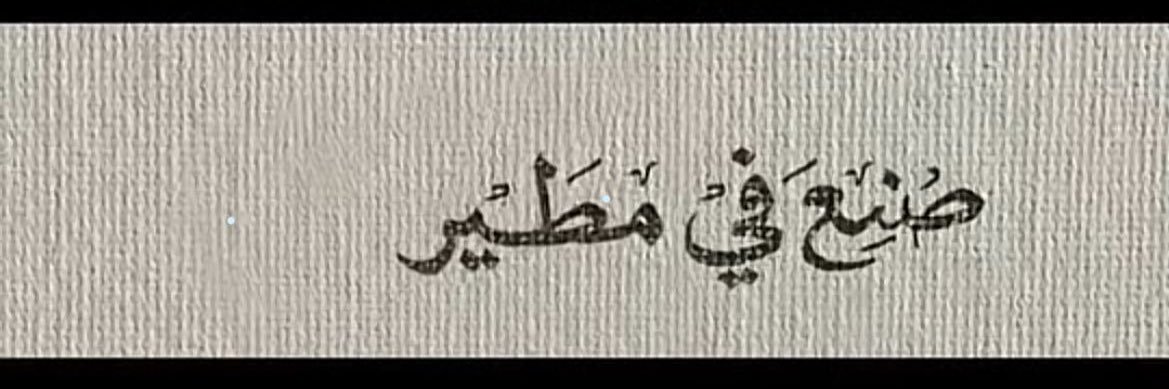 صُنِعَ فِيْ مَطَيْر